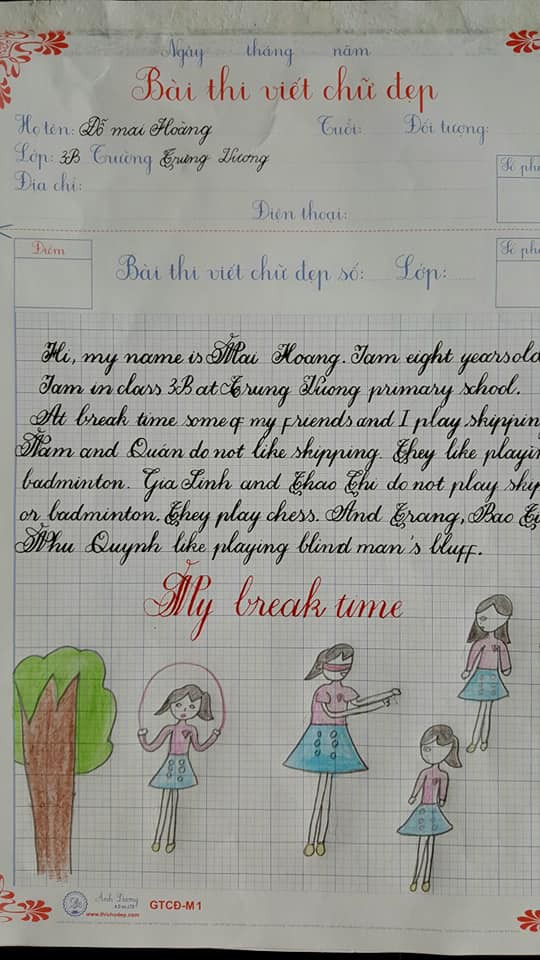 Ngày tháng năm
Bài thi viết chữ đẹp
Họ tên: Đỗ mai Hoàng Tuổi: Đối tượng:
Lớp: 3B Trường Trưng Vương
Địa chỉ: Số
Điện thoại:
Điểm Số
Bài thi viết chữ đẹp số: Lớp:
Hi, my name is Mai Hoang. I am eight years old
I am in class 3B at Trung Vuong primary school.
At break time some of my friends and I play
Nam and Quán do not like skipping. They like
badminton. Gia Linh and Thao Chi do not play
or badminton. They play chess. And Trang, Bao
Nhu Quynh like playing blind man's bluff.
My break time
Ánh Dương
www.thichudep.com
GTCĐ-M1